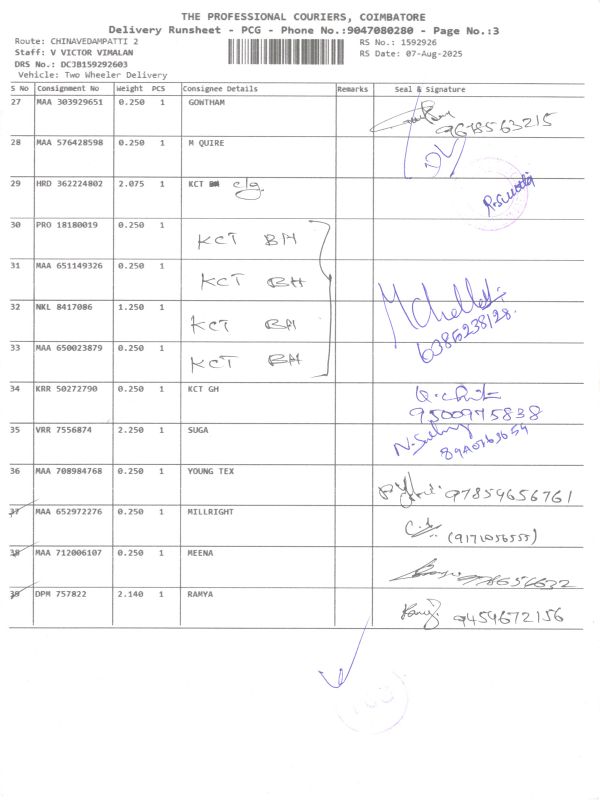 THE PROFESSIONAL COURIERS, COIMBATORE
Delivery Runsheet - PCG - Phone No.:9047080280 - Page No.:3
Route: CHINAVEDAMPATTI 2 RS No.: 1592926
Staff: V VICTOR VIMALAN RS Date: 07-Aug-2025
DRS No.: DCJB159292603
Vehicle: Two Wheeler Delivery
S No Consignment No Weight PCS Consignee Details Remarks Seal & Signature
27 MAA 303929651 0.250 1 GOWTHAM 9678563215
28 MAA 576428598 0.250 1 M QUIRE
29 HRD 362224802 2.075 1 KCT clg.
30 PRO 18180019 0.250 1 KCT BH
31 MAA 651149326 0.250 1 KCT BH
32 NKL 8417086 1.250 1 KCT BH 6385238128
33 MAA 650023879 0.250 1 KCT BH
34 KRR 50272790 0.250 1 KCT GH 9500975838
35 VRR 7556874 2.250 1 SUGA
36 MAA 708984768 0.250 1 YOUNG TEX 97859656761
37 MAA 652972276 0.250 1 MILLRIGHT (9171056555)
38 MAA 712006107 0.250 1 MEENA
39 DPM 757822 2.140 1 RAMYA 9459672156